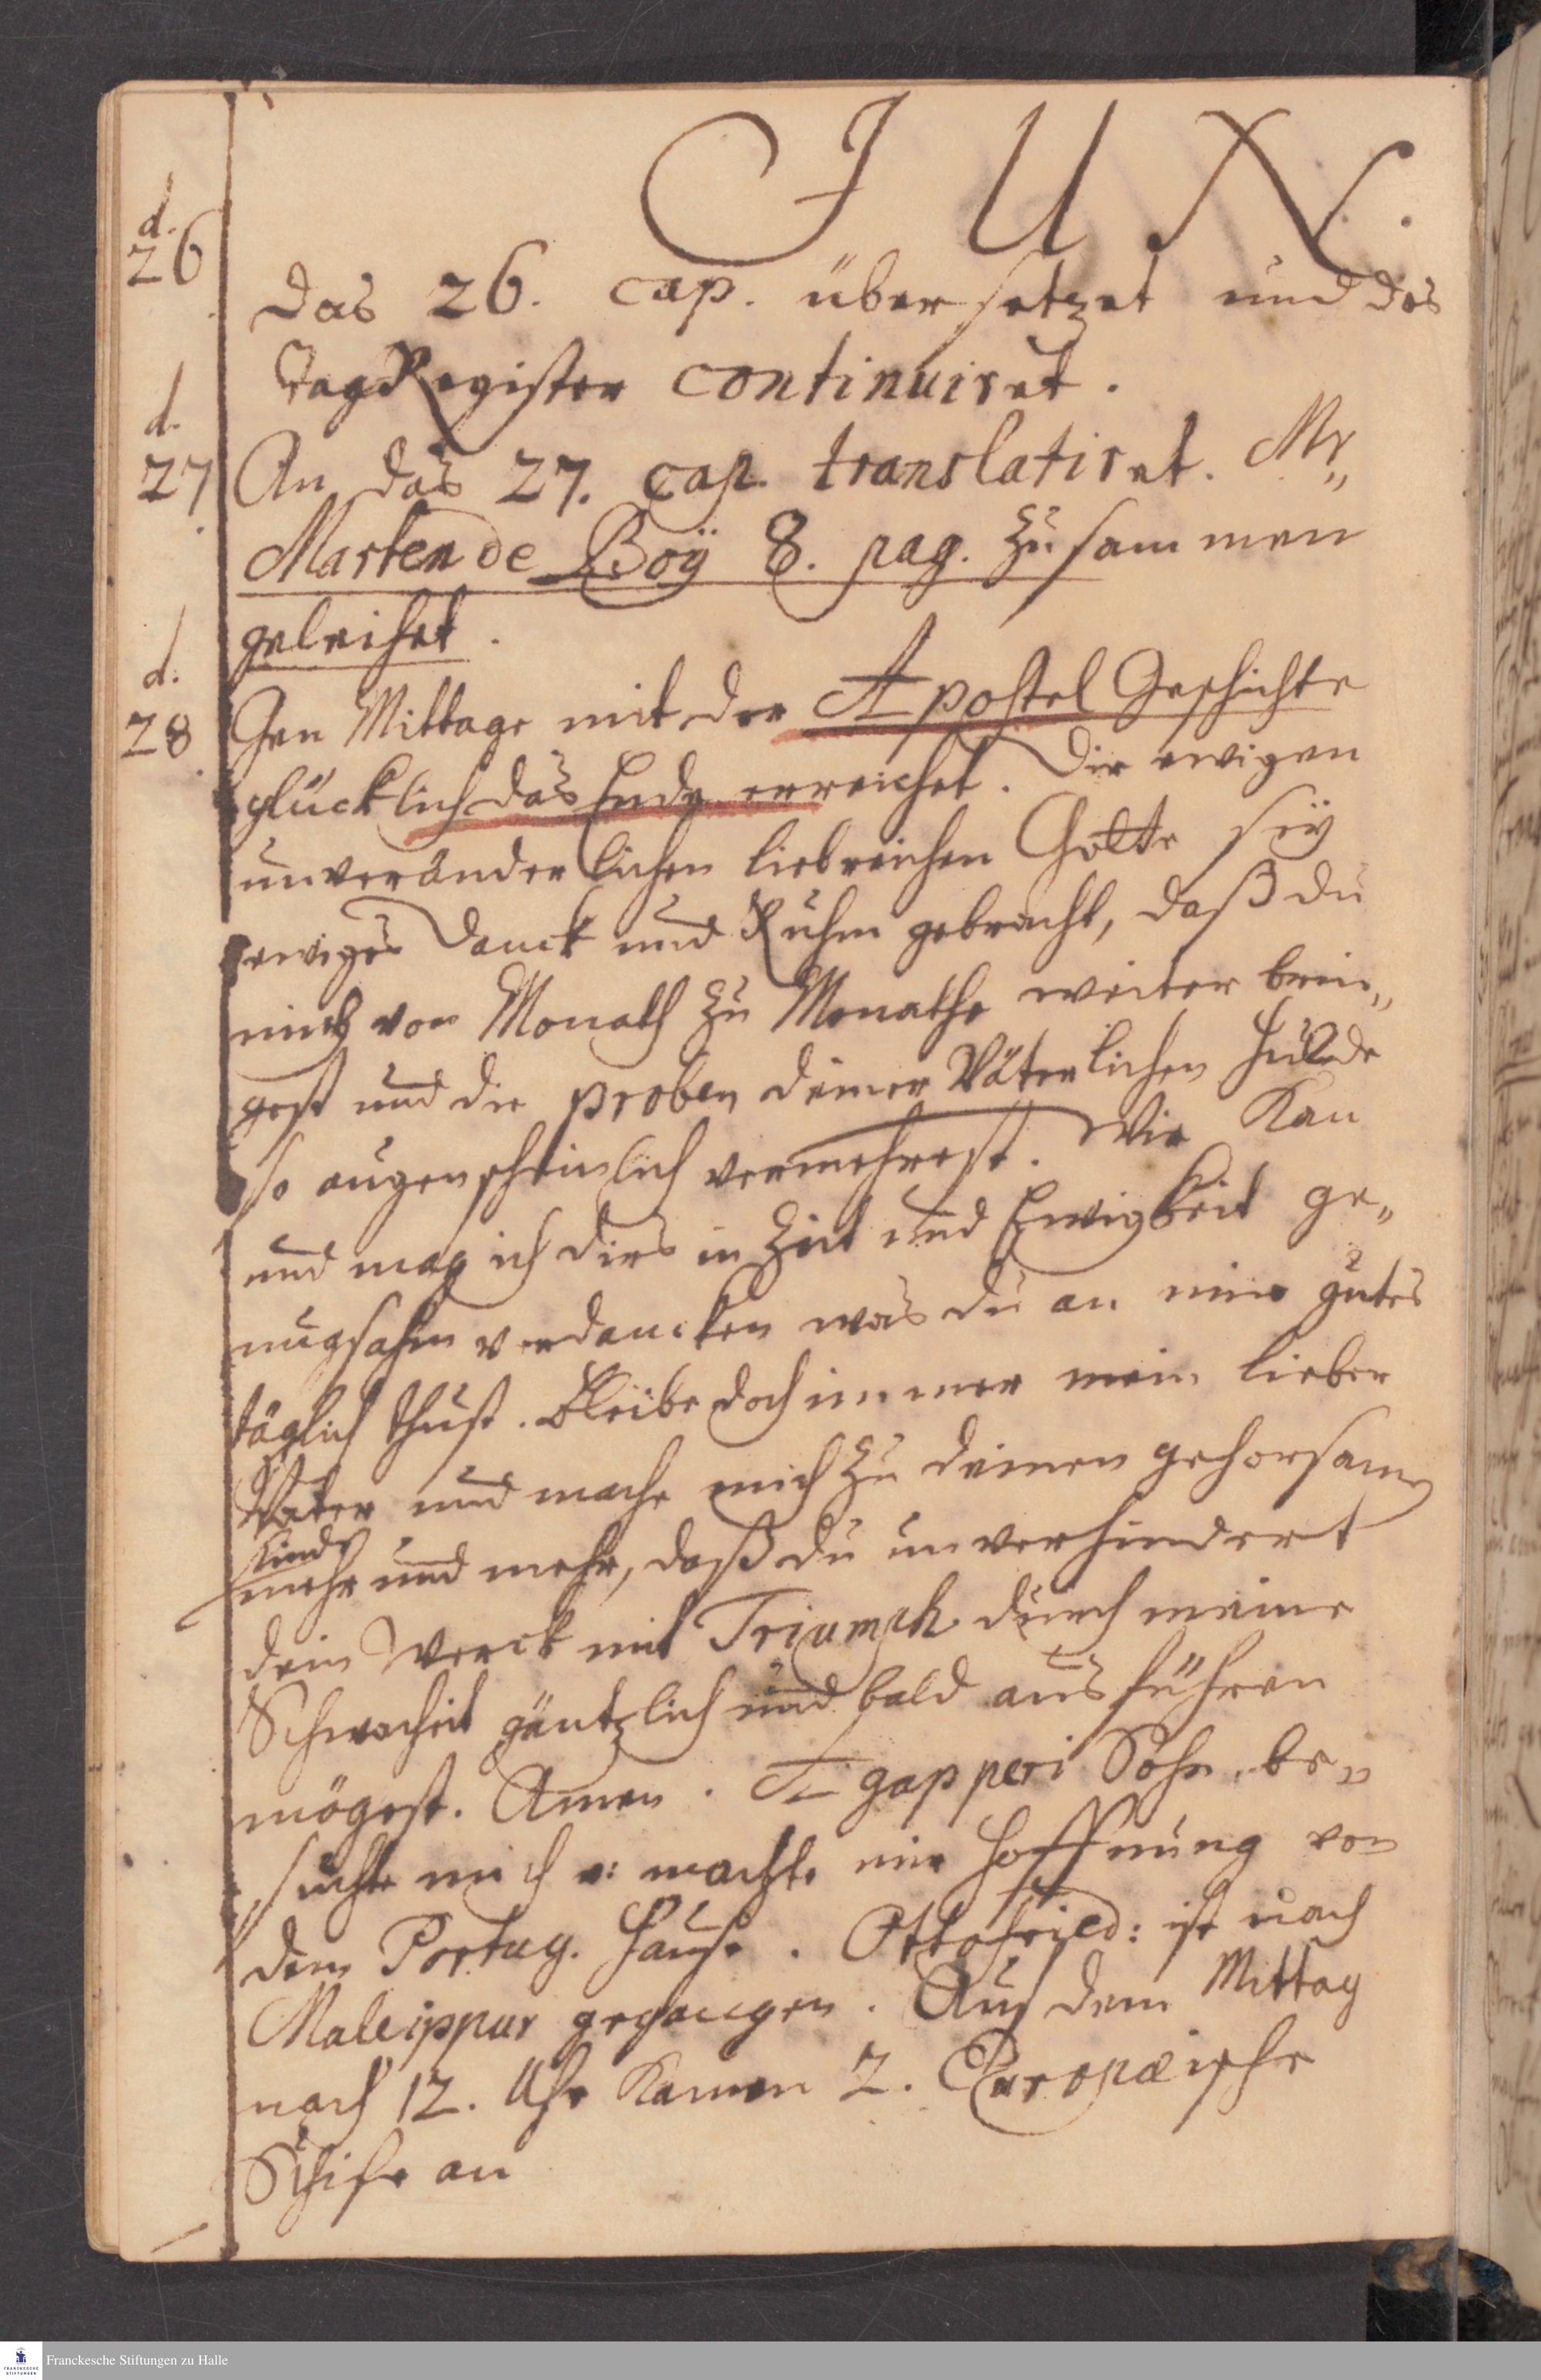 JUN.
d.
26
das 26. cap. übersetzet und das
TagRegister continuiret.
d.
27
An das 27. cap. translatiret. Mr.
Marten de Boÿ 8. pag. zusammen
geleihet.
d.
28
Gen Mittage mit der Apostel Geschichte
glücklich das Ende erreichet. Dir ewigen
unveränderlichen liebreichen Gotte seÿ
ewiges Danck und Ruhm gebracht, daß du
mich von Monath zu Monathe weiter brin„
gest und die proben deiner Väterlichen Hulde
so augenscheinlich vermehrest. Wie kan
und mag ich dirs in Zeit und Ewigkeit ge„
nugsahm verdancken was du an mir gutes
täglich thust. Bleibe doch immer mein lieber
Vater und mache mich zu deinen gehorsam
Kinde
mehr und mehr, daß du unverhindert
dein Werck mit Triumph durch meine
Schwacheit gäntzlich und bald ausführen
mögest. Amen. Agapperi Sohn be„
suchte mich u: machte mir Hoffnung von
dem Portug. Hause. Ottofried: ist nach
Maleippur gegangen. Auf dem Mittag
nach 12. Uhr kamen 2. Europæische
Schife an
Franckesche Stiftungen zu Halle